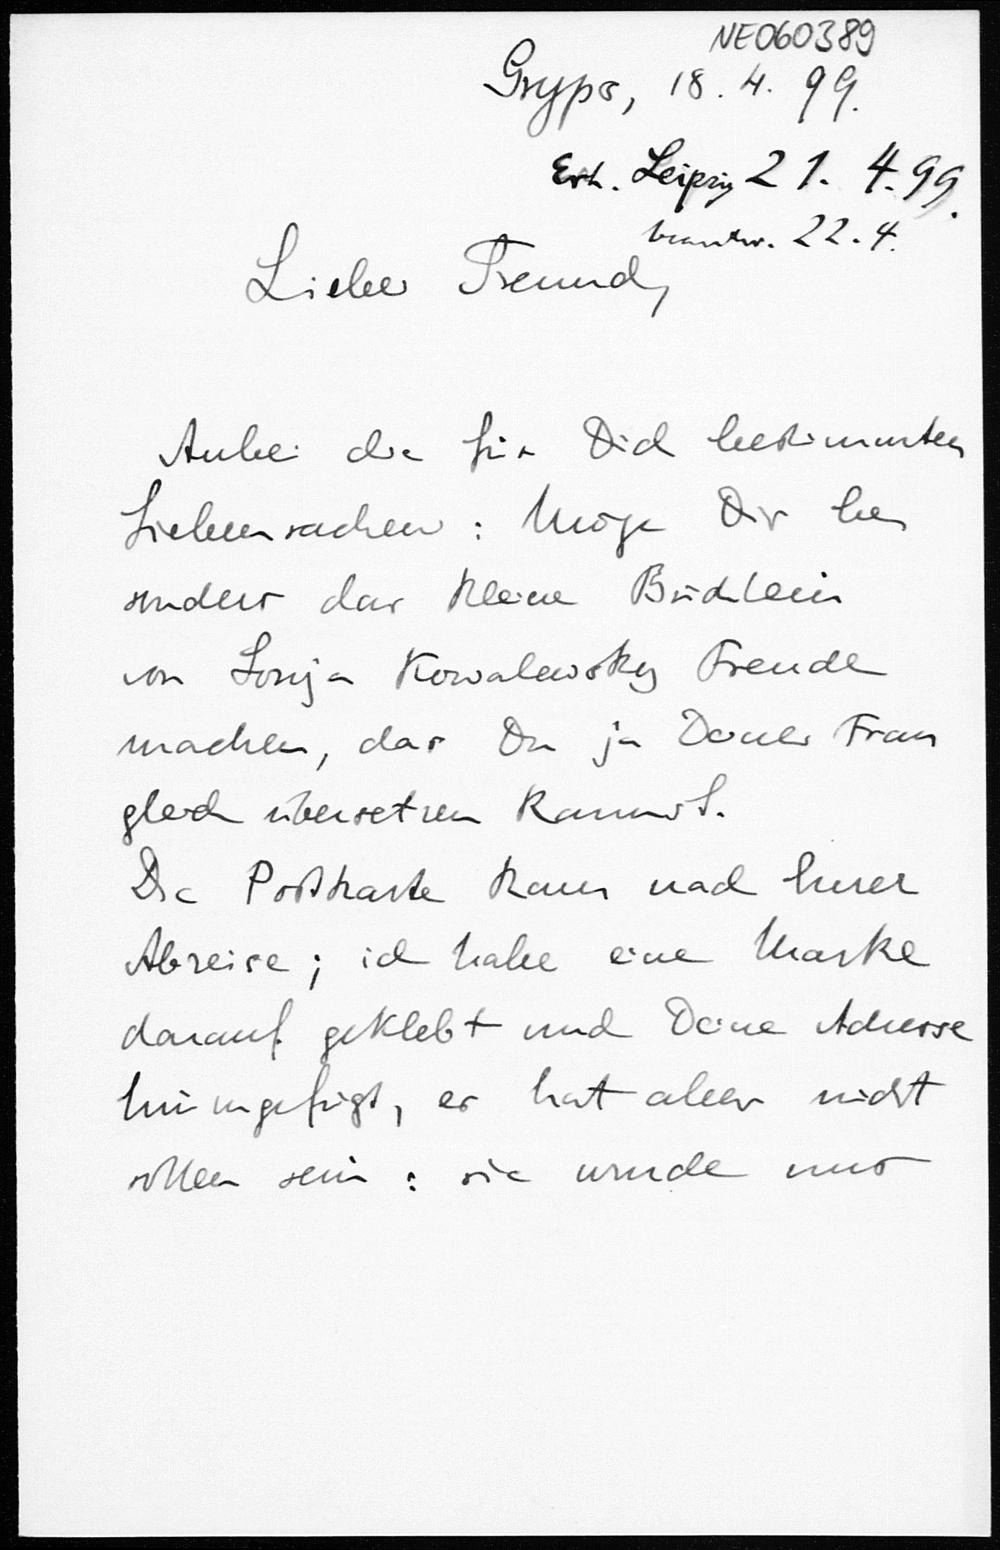 NE060389
Gryps, 18. 4. 99.
Erh. Leipzig 21. 4. 99.
beantw. 22. 4.
Lieber Freund,
Anbei die für Dich bestimmten
Siebensachen: Möge Dir be
sonders das kleine Büchlein
von Sonja Kowalewsky Freude
machen, das Du ja Deiner Frau
gleich übersetzen kannst.
Die Postkarte kam nach Eurer
Abreise; ich habe eine Marke
darauf geklebt und Deine Adresse
hinzugefügt, es hat aber nicht
sollen sein: sie wurde uns